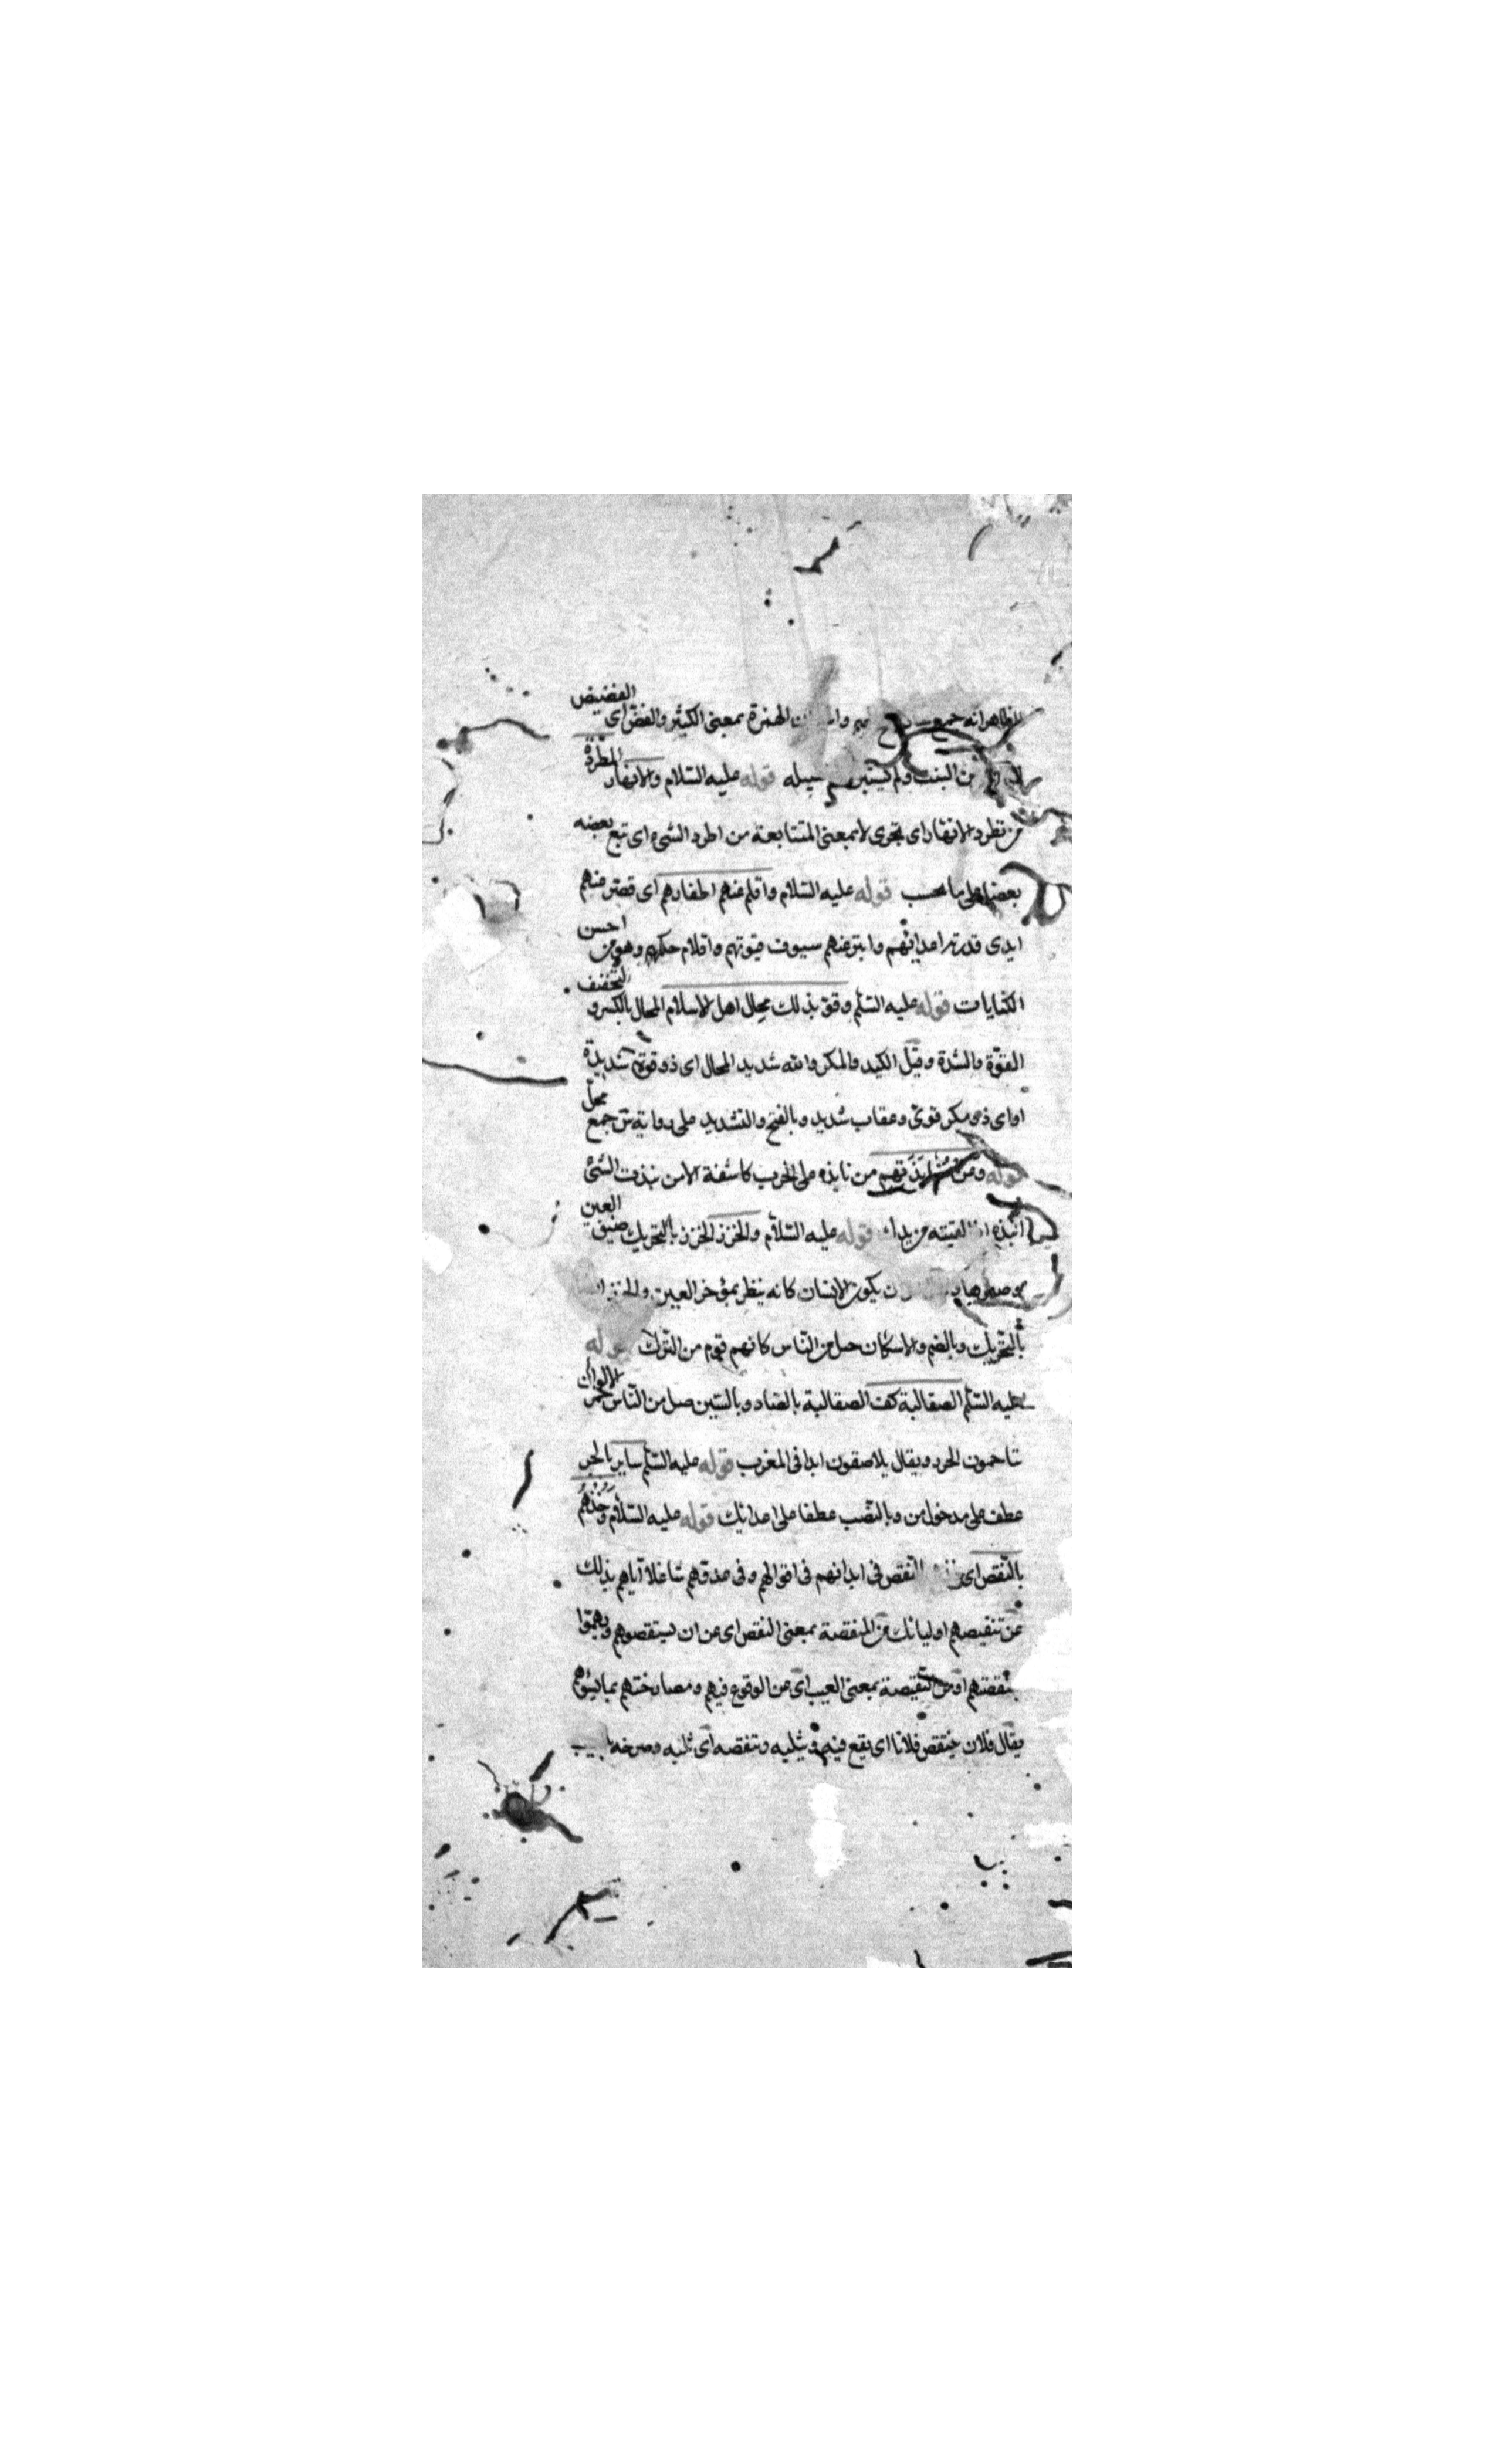 الظاهر انه جمع الهمزة بمعنى الكثير والغض اى الغضيض
من البنت ولم يستبن سبيله قوله عليه السّلام والانهار المطّردة
من تطرد الانهار اى تجرى لا بمعنى المتتابعة من اطرد الشىء اى تبع بعضه
بعضا على ما يحسب قوله عليه السّلام واقلم عنهم اظفارهم اى قصّر عنهم
ايدى قدرة اعدائهم وابتر عنهم سيوف قوتهم واقلام حكمهم وهو من احسن
الكنايات قوله عليه السّلم وقوّ بذلك محال اهل الاسلام المحال بالكسر و التخفيف
القوّة والشدة وقيل الكيد والمكر والله شديد المحال اى ذو قوة شديدة
او اى ذو مكر قوىّ وعقاب شديد وبالفتح والتشديد على رواية س جمع محلّ
قوله وعن منابذتهم من نابذه على الحرب كاشفة الامن نبذت الشئ
انبذه القيته من يدك قوله عليه السّلام والخزر الخزر بالتحريك ضيق العين
وصغرها ان يكون الانسان كانه ينظر بمؤخر العين والخزر
بالتحريك وبالضم والاسكان جيل من النّاس كانهم قوم من الترك قوله
عليه السّلم الصقالبة كف الصقالبة بالصاد وبالسّين جيل من النّاس حمر الالوان
تتاخمون الخزر ويقال يلاصقون ابدا فى المغرب قوله عليه السّلم ساير بالجر
عطف على مدخول من وبالنّصب عطفا على اعدائك قوله عليه السّلام وخذهم
بالنّقص اى النّقص فى ابدانهم فى اموالهم وفى عددهم شاغلا اياهم بذلك
عن تنقيصهم اوليائك من المنقصة بمعنى النقص اى عن ان يستنقصوهم ويهمّوا
بنقصتهم او من النّقيصة بمعنى العيب اى عن الوقوع فيهم ومصارختهم بما يسؤهم
يقال فلان ينتقص فلانا اى يقع فيه ويثلبه وتنقصه اى ثلبه وصرخه